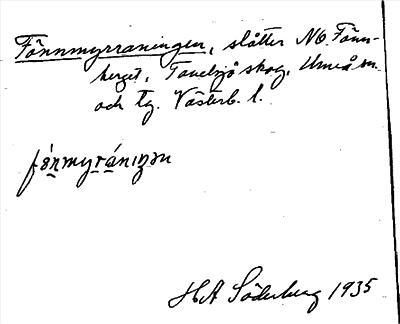 Fännmyrraningen, slåtter NO. Fänn-
berget, Tavelsjö skog, Umeå sn.
och tg. Västerb. l.
fǻnmyránıŋən
HA Söderberg 1935